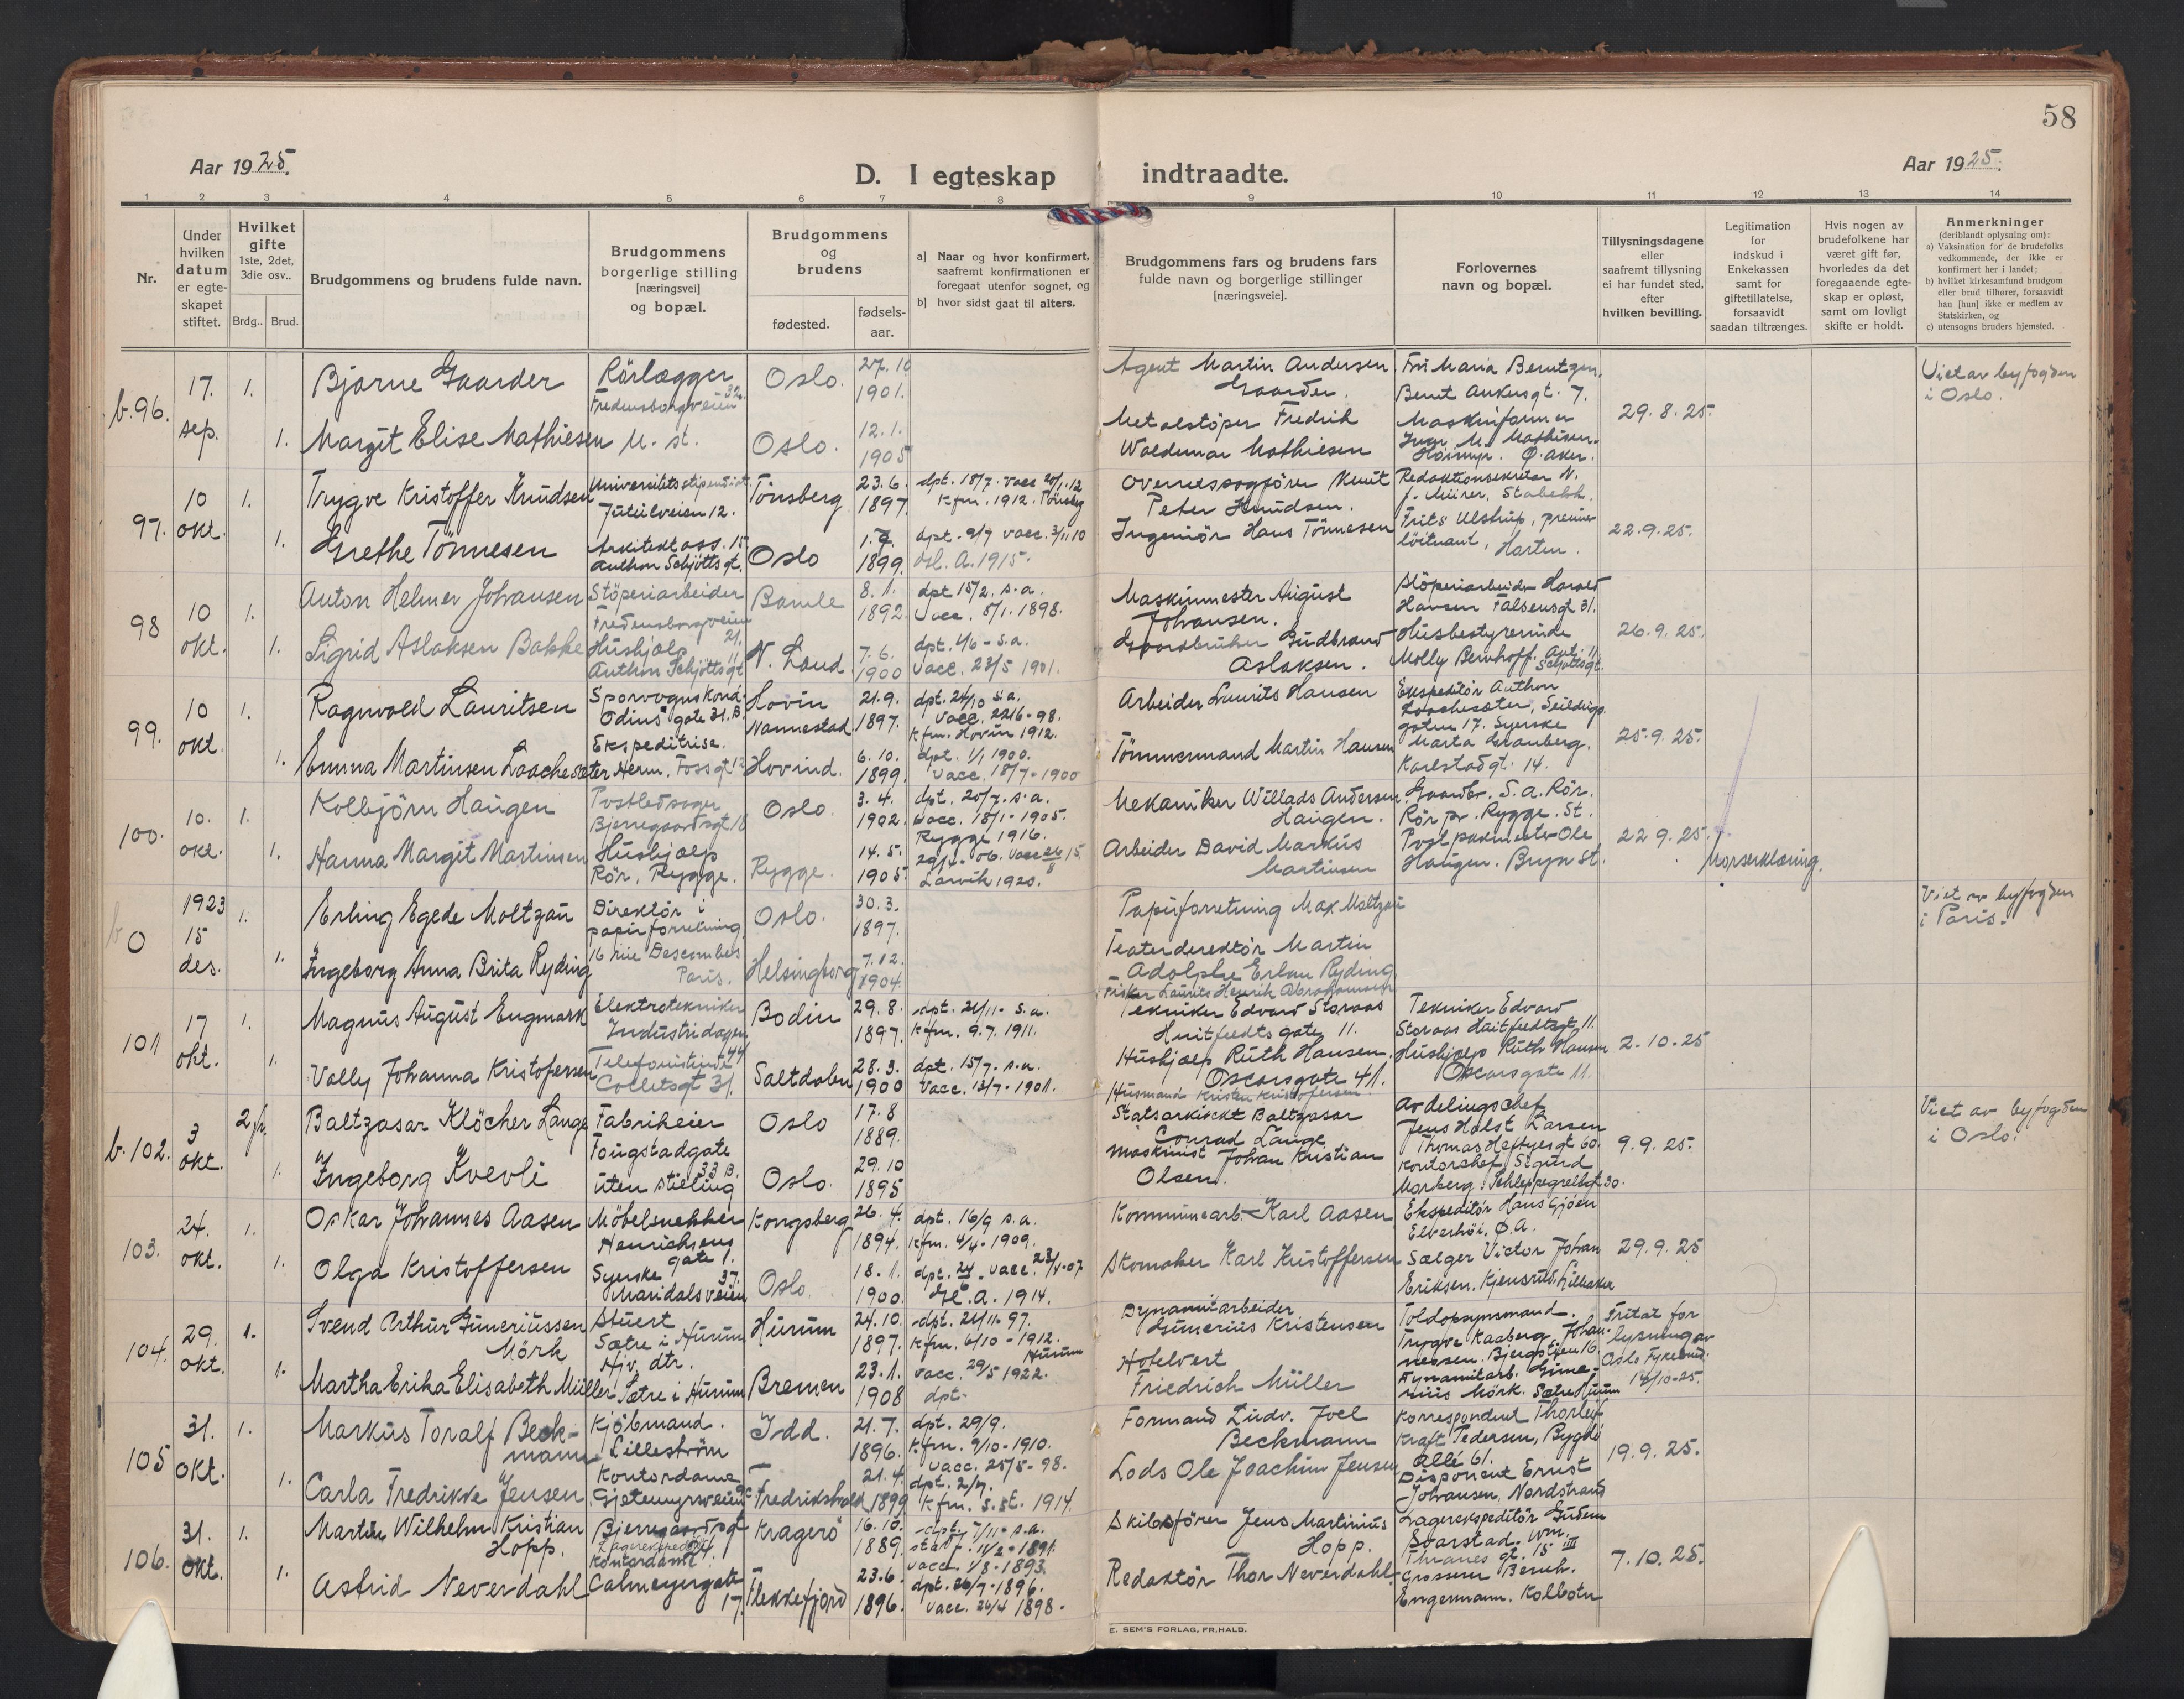 58
Aar 1925.
D. I egteskap indtraadte.
Aar 1925.
1 2 3 4 5 6 7 8 9 10 11 12 13 14
Nr.
Under hvilken datum er egteskapet stiftet.
Hvilket gifte 1ste, 2det, 3die osv..
Brdg.. Brud.
Brudgommens og brudens fulde navn.
Brudgommens borgerlige stilling [næringsvei] og bopæl.
Brudgommens og brudens
fødested.
fødsels-aar.
a] Naar og hvor konfirmert, saafremt konfirmationen er foregaat utenfor sognet, og
b] hvor sidst gaat til alters.
Brudgommens fars og brudens fars fulde navn og borgerlige stillinger [næringsveie].
Forlovernes navn og bopæl.
Tillysningsdagene eller saafremt tillysning ei har fundet sted, efter hvilken bevilling.
Legitimation for indskud i Enkekassen samt for giftetillatelse, forsaavidt saadan tiltrænges.
Hvis nogen av brudefolkene har været gift før, hvorledes da det foregaaende egteskap er opløst, samt om lovligt skifte er holdt.
Anmerkninger (deriblandt oplysning om):
a) Vaksination for de brudefolks vedkommende, der ikke er konfirmert her i landet;
b) hvilket kirkesamfund brudgom eller brud tilhører, forsaavidt han [hun] ikke er medlem av Statskirken, og
c) utensogns bruders hjemsted.
b. 96. 17. sep. 1. Bjarne Gaarder Rörlægger Fredensborgveien 32. Oslo. 27. 10 1901. Agent Martin Andersen Gaarder. Fru Maria Berntzen, Bernt Ankersgt. 7. 29. 8. 25. Viet av byfogden i Oslo.
1. Margit Elise Mathiesen u. st. Oslo. 12. 1. 1905 Metalstöper Fredrik Waldemar Mathiesen Maskinformer M. Mathisen. Ö. Aker.
97. 10 okt. 1. Trygve Kristoffer Knudsen Universitetsstipendiat Jutulveien 12. Tönsberg 23. 6. 1897 dpt. 18/7. vacc 20/1.12 Kfm. 1912. Tönsberg Overretssagförer Knut Peter Knudsen. Redaktionsekretær N. J. Mürer, Stabekk. 22.9.25.
1. Grethe Tönnesen Arkitekt ass. Anthon Schjöttsgt. 15 Oslo 1.7. 1899. dpt. 9/7 vacc. 3/11 10 Gl. A. 1915. Ingeniör Hans Tönnesen Frits Ulstrup, premierlöitnant, Horten.
98 10 okt. 1. Anton Helmer Johansen Støperiarbeider Fredensborgveien 21. Bamle 8. 1. 1892 dpt 15/2. s.a. Vacc. 5/1. 1898. Maskinmester August Johansen. Stöperiarbeider Harald Hansen Falsensgt 31. 26.9.25.
1. Sigrid Aslaksen Bakke Hushjælp Anthon Schjöttsgt 11 N. Land 7. 6. 1900 dpt. 1/6 - s.a. Vacc. 23/5 1901. Gaardbruker Gudbrand Aslaksen. Husbestyrerinde Molly Bernhoff. Ant. Schjöttsgt. 11
99. 10 okt. 1. Ragnvald Lauritsen Sporvognskond. Odins gate 31.B. Hovin Nannestad 21.9. 1897. dpt. 24/10 s.a. Vacc. 22/6 - 98. Kfm. Hovin 1912. Arbeider Laurits Hansen Ekspeditör Anthon Laachesæter, Seilduksgaten 17. Syerske Marta Granberg. Karlstadgt. 14. 25.9.25.
1. Emma Martinsen Laachesæter Ekspeditrise. Herm. Fossgt 12 Hovind. 6. 10. 1899. dpt. 1/1 1900. Vacc. 18/7 - 1900 Tömmermand Martin Hansen
100. 10. okt. 1. Kolbjörn Haugen Postledsager Bjerregaardsgt 18 Oslo. 3. 4. 1902. dpt. 20/7. s.a. Vacc. 18/1 - 1905. Mekaniker Willads Andersen Haugen. Gaardbr. S. A. Rör. Rör pr. Rygge. St. 22 9.25. Morserklæring.
1. Hanna Margit Martinsen Hushjælp Rör, Rygge. Rygge. 14. 5. 1905 Rygge 1916. Larvik 1920. Arbeider David Markus Martinsen Postpakmester Ole Haugen. Bryn St.
b 0 1923 15 des. 1. Erling Egede Moltzau Direktör i papirforretning Oslo. 30. 3. 1897. Papirforretning Max Moltzau Viet av byfogden i Paris.
1. Ingeborg Anna Brita Ryding 16 rue Descombes Paris. Helsingborg 7.12. 1904 Teaterdirektör Martin Adolphe Erban Ryding
101 17 okt. 1. Magnus August Engmark Elektrotekniker Industridagen Bodin 29. 8. 1897. dpt. 21/11 - s.a. Kfm. 9. 7. 1911. Fisker Laurits Henrik Abrahamsen Tekniker Edvard Storaas Huitfeldts gate 11. Tekniker Edvard Storaas Huitfeldtsgt 11. 2.10.25
1. Vally Johanna Kristofersen Telefonistinde 44 Colletsgt 31. Saltdalen 28. 3. 1900 dpt. 15/7. s.a. Vacc. 13/7 - 1901. Hushjælp Ruth Hansen. Oscarsgate 41. Husmand Kristen Kristofersen. Hushjælp Ruth Hansen Oscarsgate 11.
b. 102. 3 okt. 2 fr. Baltzasar Klöcher Lange Fabrikeier Fougstadgate 33 B. Oslo 17. 8 1889. Statsarkitekt Baltzasar Conrad Lange Avdelingschef Jens Holst Larsen Thomas Heftyesgt 60. 9.9.25. Viet av byfogden i Oslo.
1. Ingeborg Kvevli uten stilling Oslo. 29. 10 1895 Maskinist Johan Kristian Olsen. Kontorchef Sigurd Morberg. Schleppegrellsgt 30.
103. 24. okt. 1. Oskar Johannes Aasen Möbelsnekker Henrichsens gate 1. Kongsberg 26. 4. 1894. dpt. 16/9 s.a. Kfm. 4/4 - 1909. Kommunearb. Karl Aasen Ekspeditör Hans Gjöen Elverhöi, Ö. A. 29.9.25
1. Olga Kristoffersen Syerske Maridalsveien 37. Oslo. 18. 1. 1900. Gl. A. 1914. Skomaker Karl Kristoffersen Sælger Victor Johan Eriksen. Kjensrud, Lilleaker
104. 29. okt. 1. Svend Arthur Guneriussen Mörk Stuert Sætre i Hurum Hurum 24.10. 1897. dpt. 21/11 - 97. Kfm. 6/10 - 1912. Hurum Dynamitarbeider Gunerius Kristensen Toldopsynsmand Trygve Kaaberg, Johannessen. Bjergstien 16. Fritat for lysning av Oslo Fylkesmd. 14/10-25.
1. Martha Erika Elisabeth Müller Hjv. dtr. Sætre i Hurum Bremen 23.1. 1908 Vacc. 29/5 1922. dpt. Hotelvert Friedrich Müller Dynamitarb. Gunerius Mörk. Sætre Hurum
105 31. okt. 1. Markus Toralf Beckmann Kjöbmand. Lilleström Idd. 21. 7. 1896. dpt. 29/9. Kfm. 9/10 - 1910. Vacc. 25/5 - 98. Formand Ludv. Joel Beckmann Korrespondent Thorleif Kraft Pedersen, Bygdö Allé 61. 19.9.25.
1. Carla Fredrikke Jensen Kontordame Gjetemyrsveien Fredrikshald 21. 4. 1899 Kfm. s. st. 1914. Lods Ole Joachim Jensen Disponent Ernst Johansen, Nordstrand
106. 31. okt. 1. Martin Wilhelm Kristian Hopp. Bjerregaardsgt Lagerekspeditör Kragerö 16. 10. 1889. dpt. 7/11 - s.a. Skibsförer Jens Martinius Hopp. Lagerekspeditör Gudem Svarstad. Wm. Thranes gt. 15 III 7.10.25.
1. Astrid Neverdahl Kontordame. Calmeyergate 17. Flekkefjord 23.6. 1896. dpt. 26/7 - 1896. Vacc. 26/4 1898. Redaktör Thor Neverdahl. Grosserer Engermann. Kolbotn
E. SEM'S FORLAG, FR.HALD.